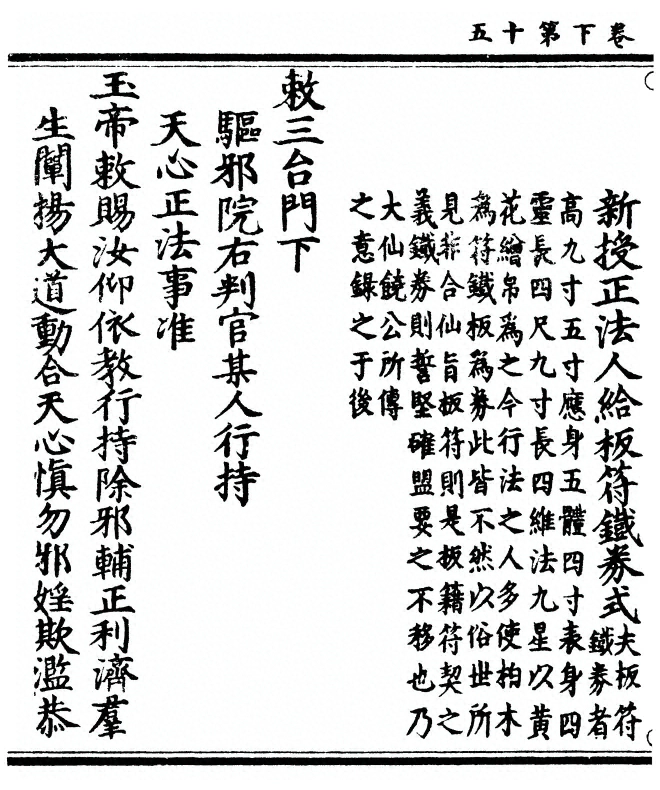 卷下第十五
新授正法人給板符鐵券式夫板符
鐵券者
高九寸五寸應身五體四寸表身四
靈長四尺九寸長四維法九星以黃
花繒帛爲之今行法之人多使柏木
爲符鐵板爲券此皆不然以俗世所
見非合仙旨板符則是板籍符契之
義鐵券則誓堅確盟要之不移也乃
大仙饒公所傳
之意錄之于後
敕三台門下
驅邪院右判官某人行持
天心正法事准
玉帝敕賜汝仰依教行持除邪輔正利濟羣
生闡揚大道動合天心愼勿邪婬欺濫恭